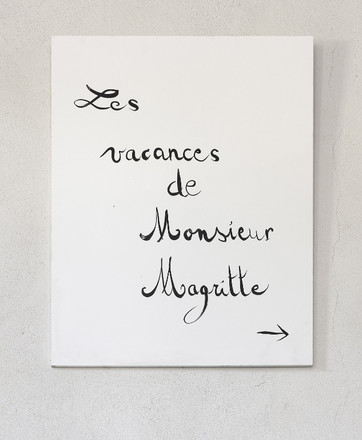 Les
vacances
de
Monsieur
Magritte
→